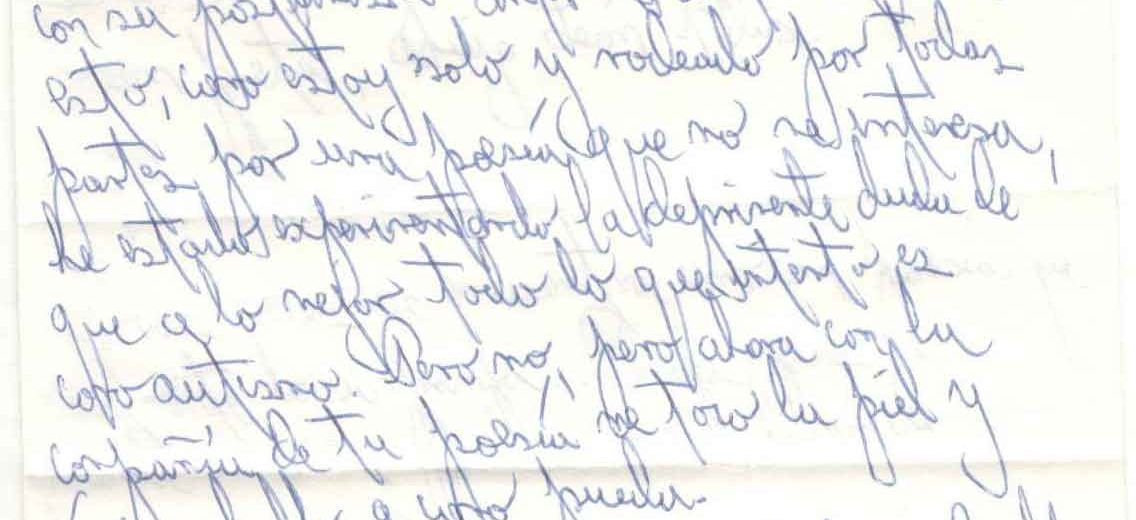 con su
esto, como estoy solo y rodeado por todas
partes por una poesía que no me interesa,
he estado experimentando la deprimente duda de
que a lo mejor todo lo que intento es
como autismo. Pero no, pero ahora con la
compañía de tu poesía me toco la piel y
a como pueda.